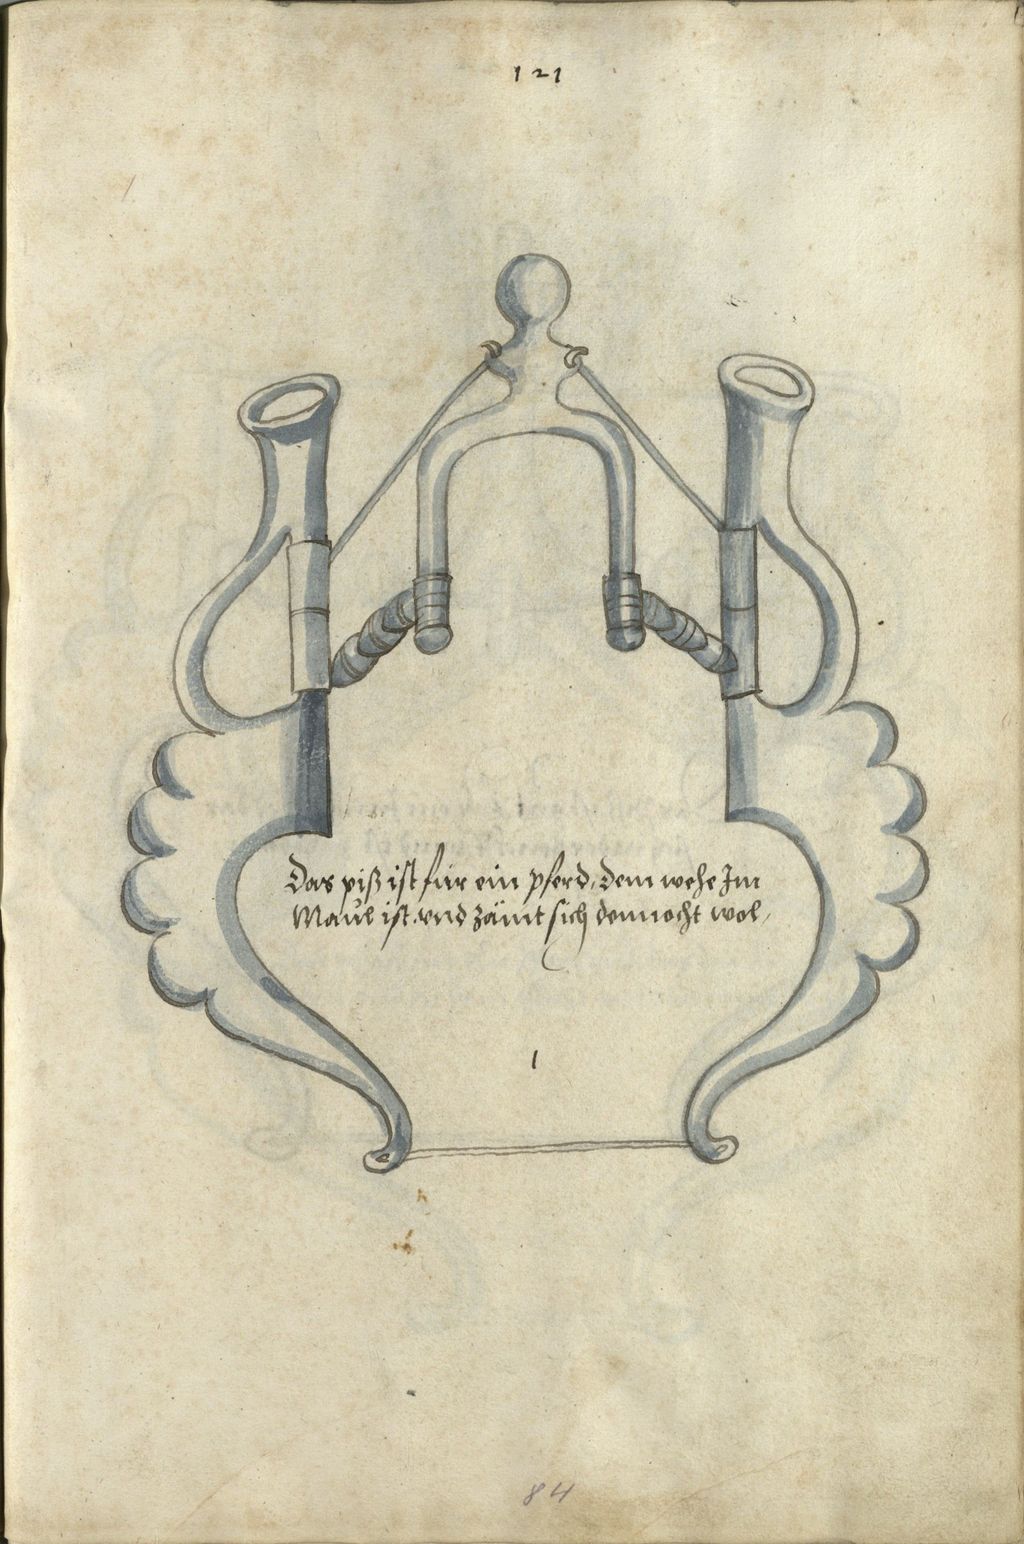 121
Das piß ist für ein pferd, dem wehe Im
Maul ist, vnd zämt sich dennocht wol,
1
84